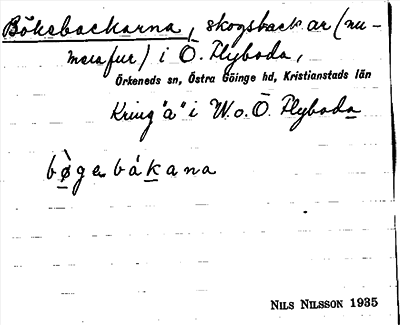 Bökebackarna, skogsbackar (nu-
mera fur) i Ö. Flyboda,
Örkeneds sn, Östra Göinge hd, Kristianstads län
Kring "a" i W. o. Ö. Flyboda
bø̀ge bákana
NILS NILSSON 1935